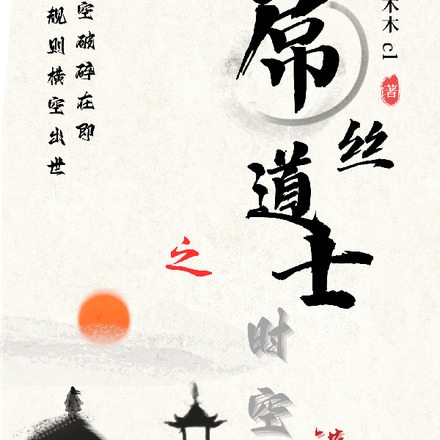 屌丝道士
之
时空
木木cl
著
空破碎在即
规则横空出世